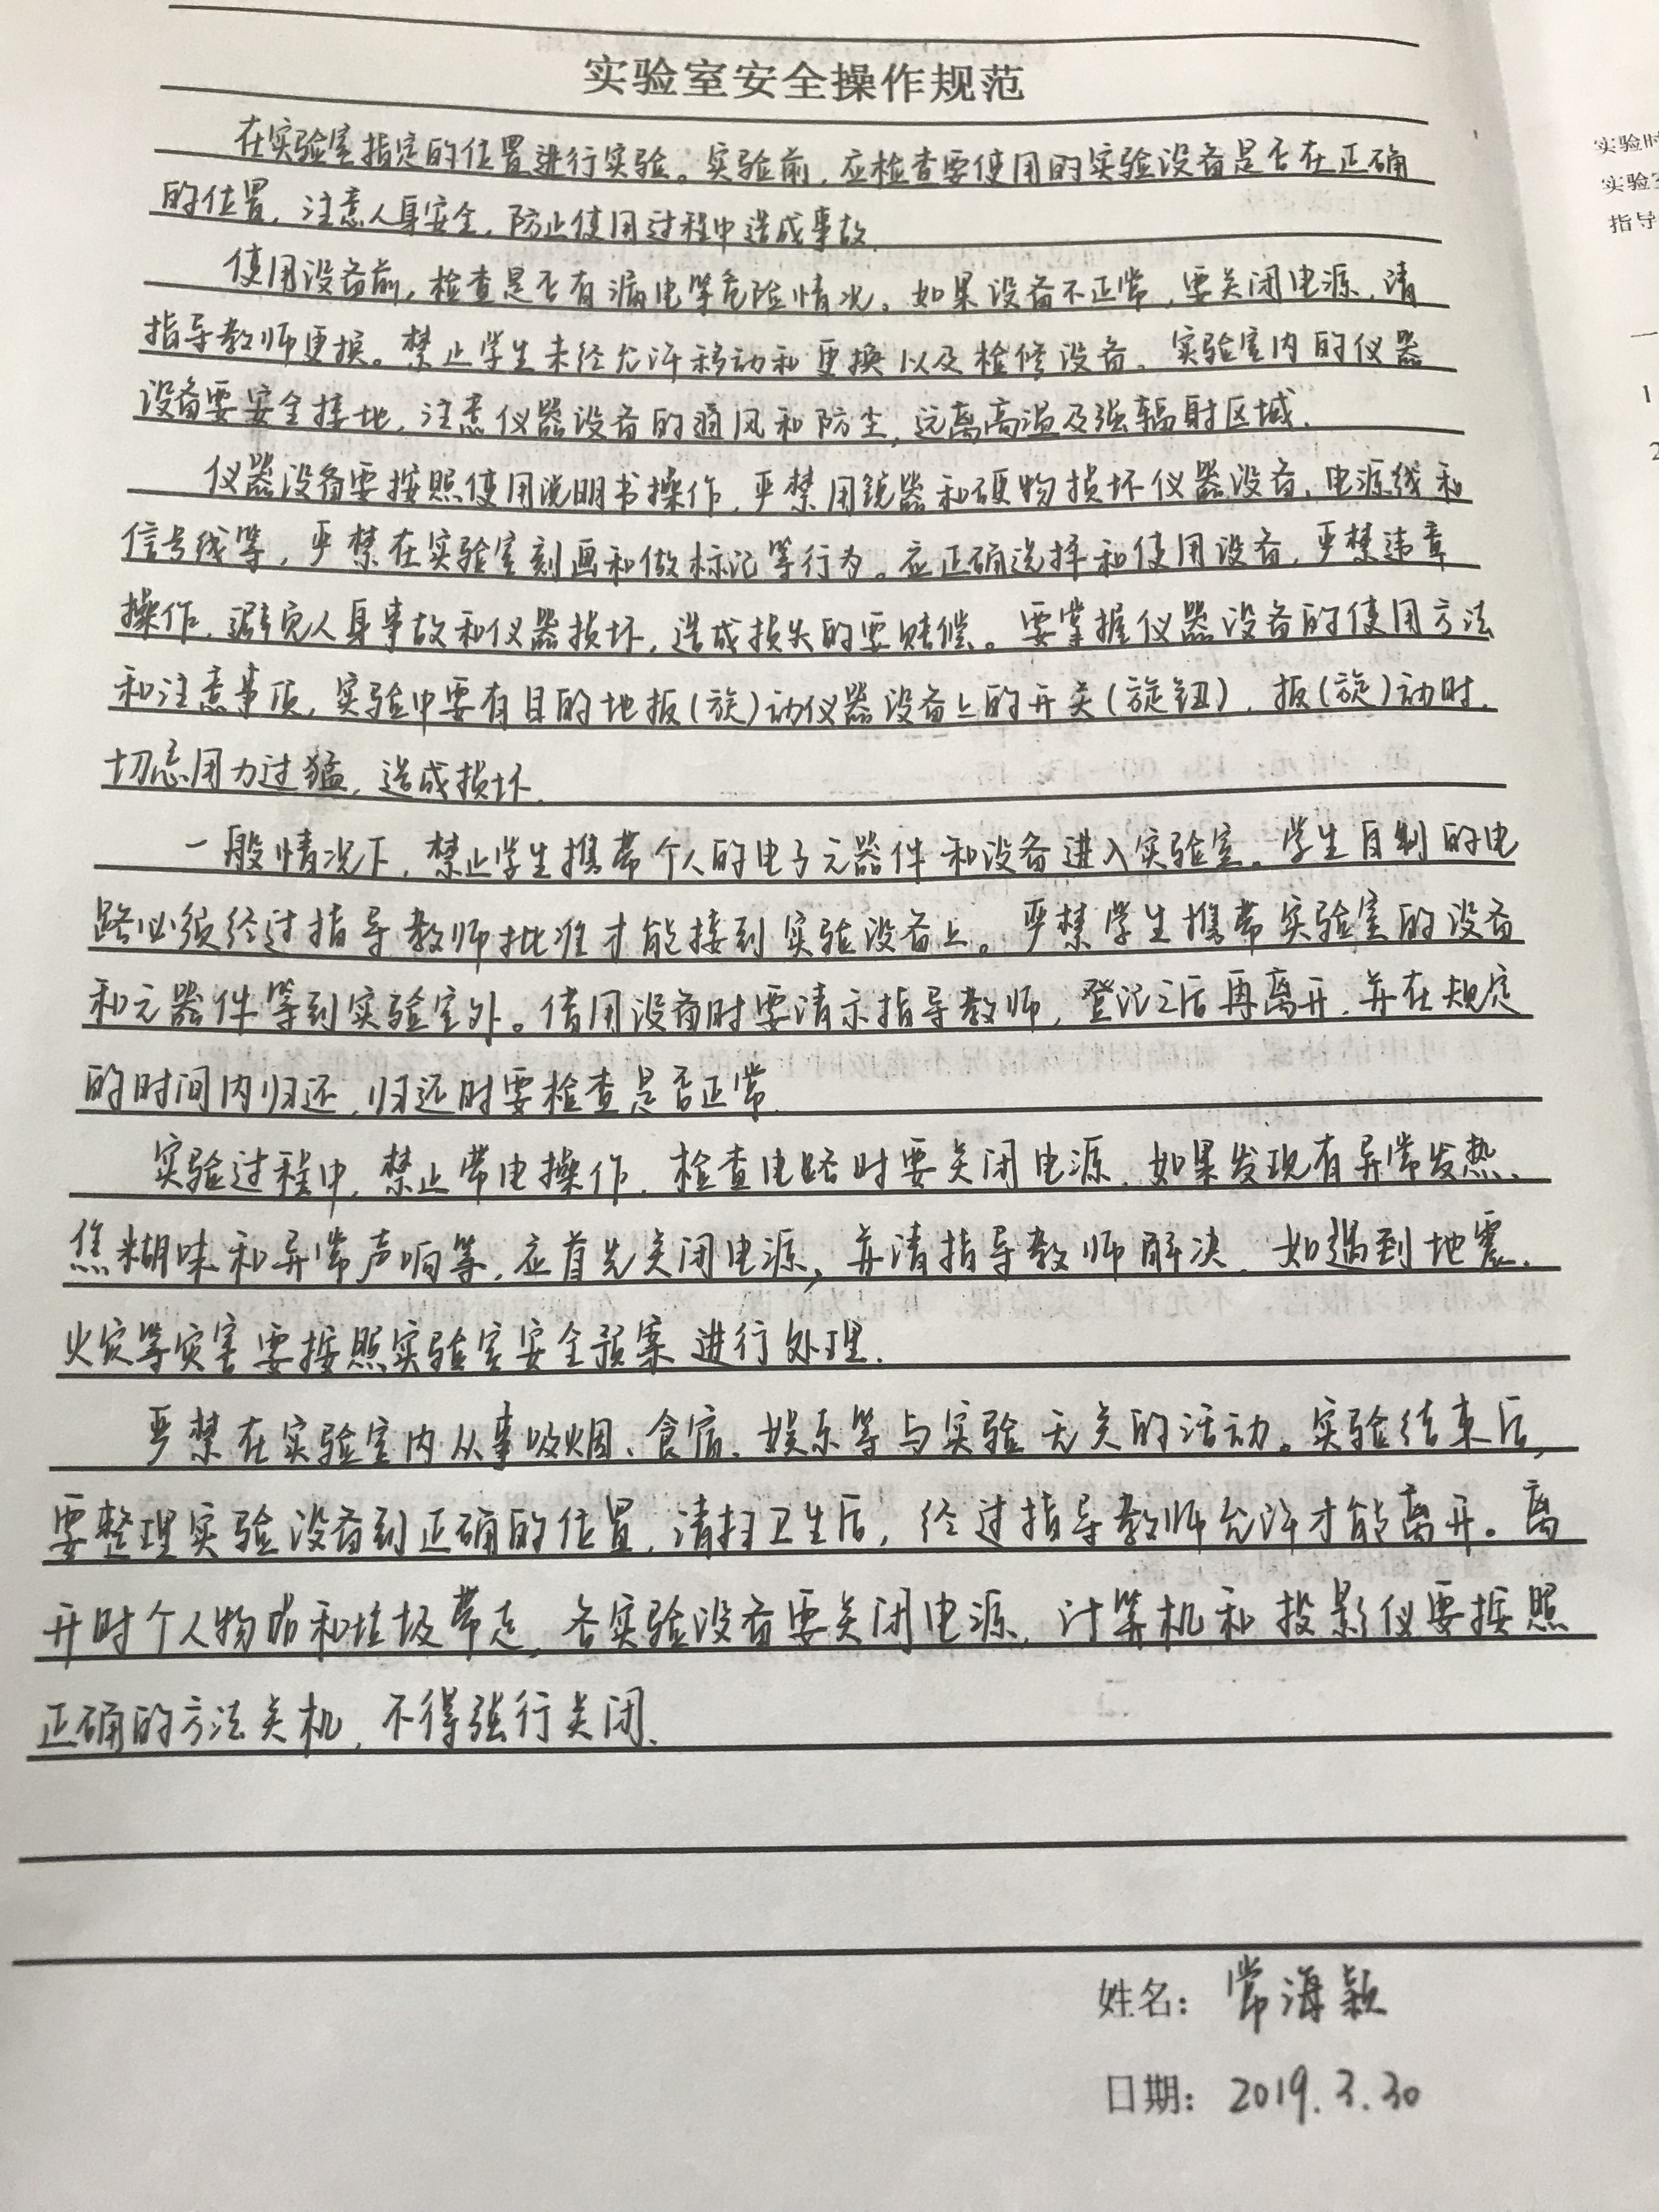 实验室安全操作规范
在实验室指定的位置进行实验。实验前,应检查要使用的实验设备是否在正确
的位置,注意人身安全,防止使用过程中造成事故.
使用设备前,检查是否有漏电等危险情况。如果设备不正常,要关闭电源,请
指导教师更换。禁止学生未经允许移动和更换以及检修设备。实验室内的仪器
设备要安全接地,注意仪器设备的通风和防尘,远离高温及强辐射区域.
仪器设备要按照使用说明书操作,严禁用锐器和硬物损坏仪器设备,电源线和
信号线等,严禁在实验室刻画和做标记等行为。应正确选择和使用设备,严禁违章
操作,避免人身事故和仪器损坏,造成损失的要赔偿。要掌握仪器设备的使用方法
和注意事项,实验中要有目的地扳(旋)动仪器设备上的开关(旋钮),扳(旋)动时,
切忌用力过猛,造成损坏.
一般情况下,禁止学生携带个人的电子元器件和设备进入实验室。学生自制的电
路必须经过指导教师批准才能接到实验设备上。严禁学生携带实验室的设备
和元器件等到实验室外。借用设备时要请示指导教师,登记之后再离开,并在规定
的时间内归还,归还时要检查是否正常.
实验过程中,禁止带电操作,检查电路时要关闭电源,如果发现有异常发热、
焦糊味和异常声响等,应首先关闭电源,并请指导教师解决,如遇到地震、
火灾等灾害要按照实验室安全预案进行处理.
严禁在实验室内从事吸烟、食宿、娱乐等与实验无关的活动。实验结束后,
要整理实验设备到正确的位置,清扫卫生后,经过指导教师允许才能离开。离
开时个人物品和垃圾带走,各实验设备要关闭电源,计算机和投影仪要按照
正确的方法关机,不得强行关闭.
姓名:常海颖
日期:2019.3.30
实验时
实验室
指导
一
1
2